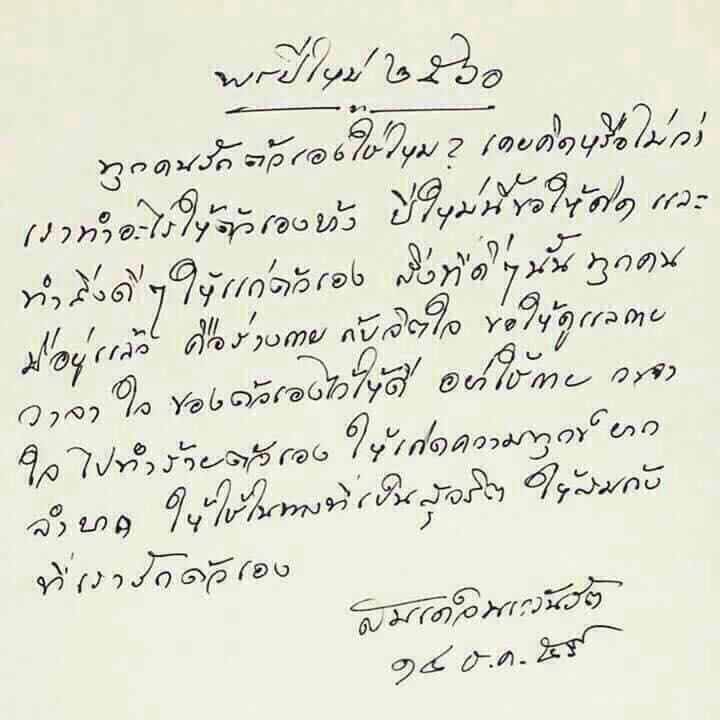 พรปีใหม่ ๒๕๖๐
ทุกคนรักตัวเองใช่ไหม? เคยคิดหรือไม่ว่า
เราทำอะไรให้ตัวเองบ้าง ปีใหม่นี้ขอให้คิด และ
ทำสิ่งดี ๆ ให้แก่ตัวเอง สิ่งที่ดี ๆ นั้น ทุกคน
มีอยู่แล้ว คือร่างกาย กับจิตใจ ขอให้ดูแลกาย
วาจา ใจ ของตัวเองไว้ให้ดี อย่าใช้กาย วาจา
ใจ ไปทำร้ายตัวเอง ให้เกิดความทุกข์ ยาก
ลำบาก ให้ใช้ในทางที่เป็นสุจริต ให้สมกับ
ที่เรารักตัวเอง
สมเด็จพระวันรัต
๑๔ ธ.ค. ๕๙